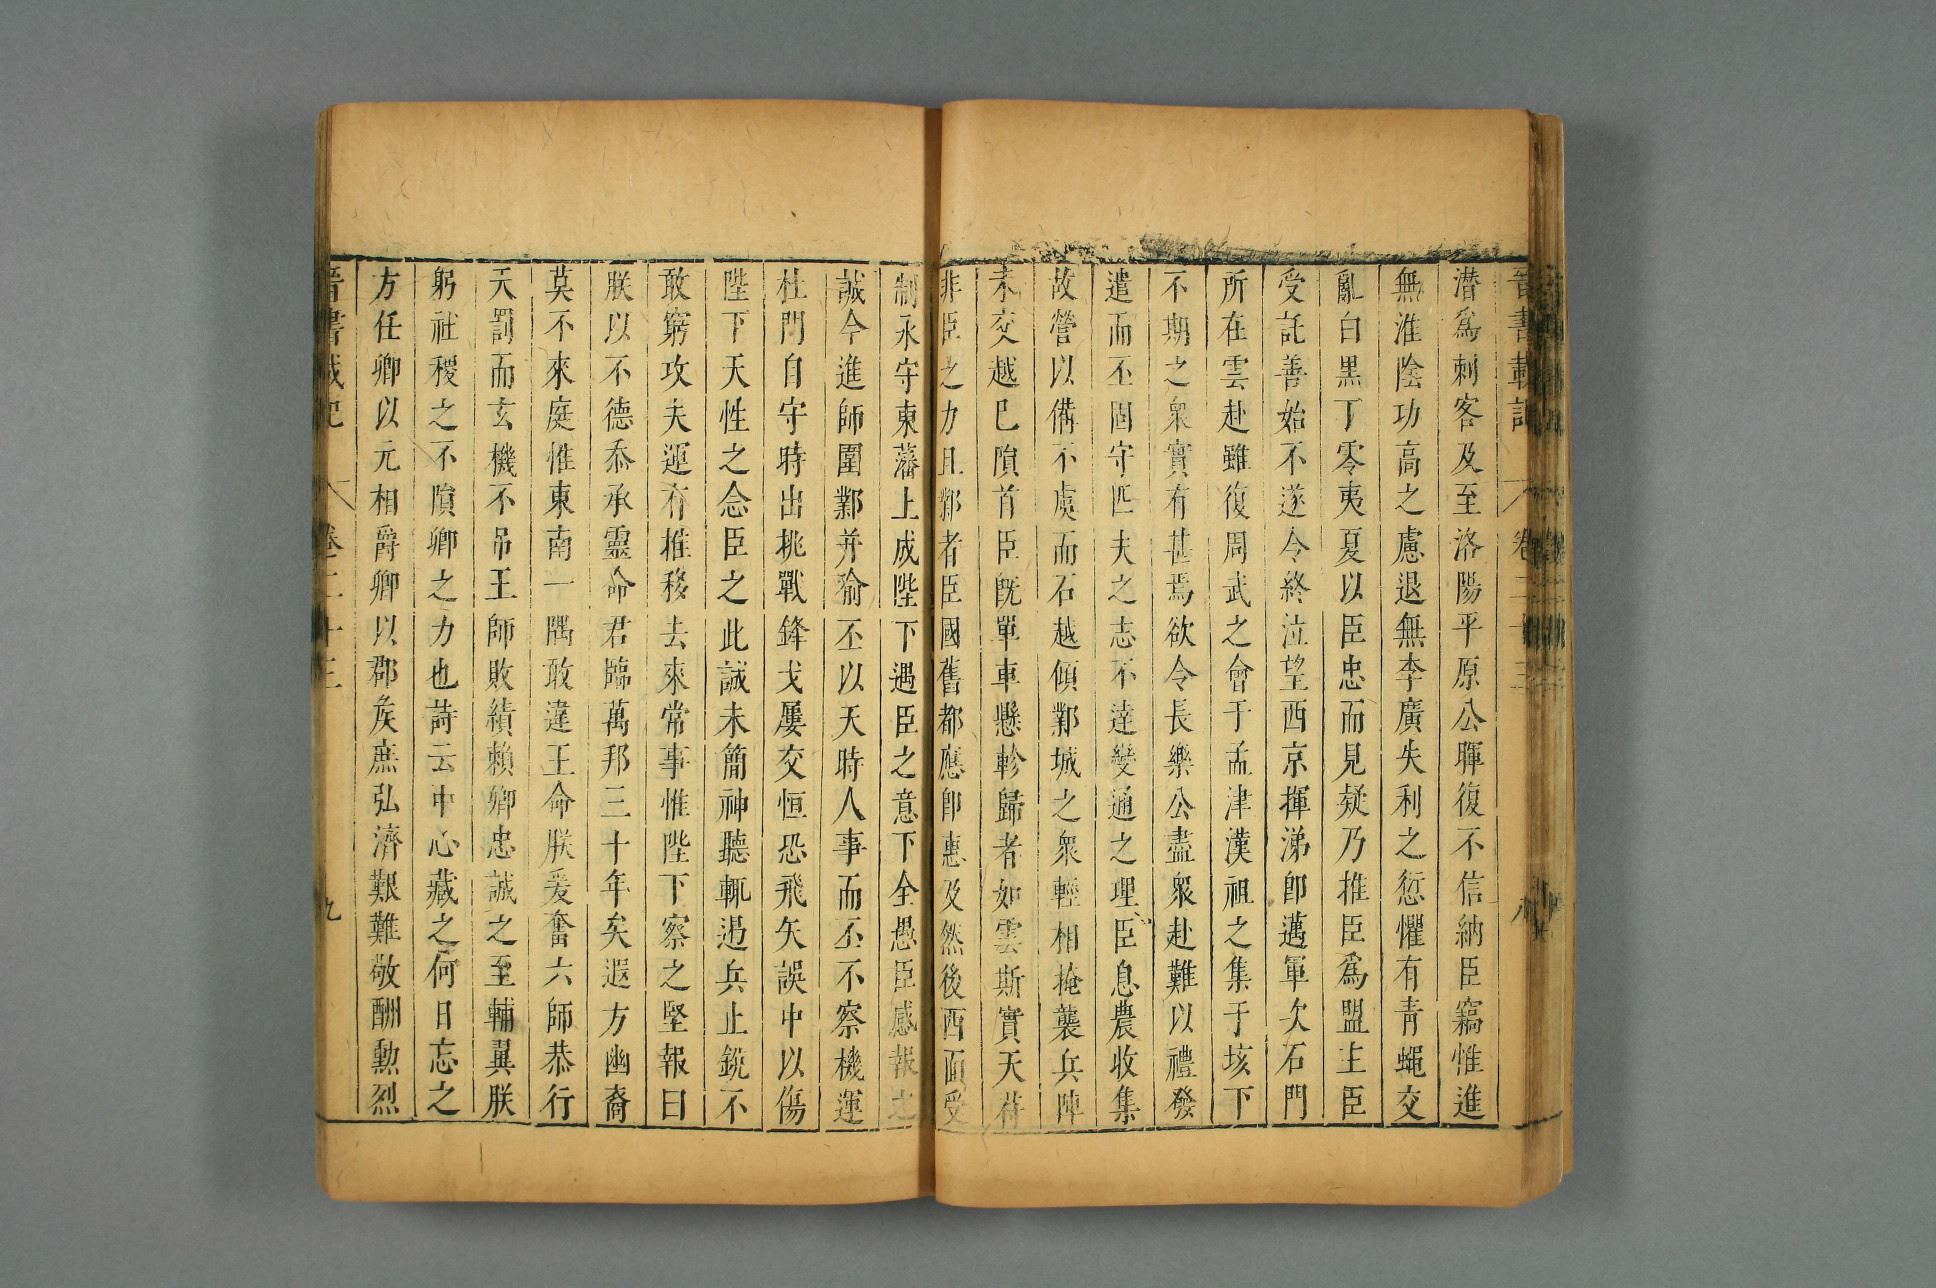 晉書載記 卷二十三 八
潜爲刺客及至洛陽平原公暉復不信納臣竊惟進
無淮陰功高之慮退無李廣失利之愆懼有青蠅交
亂白黑丁零夷夏以臣忠而見疑乃推臣爲盟主臣
受託善始不遂令終泣望西京揮涕卽邁軍次石門
所在雲赴雖復周武之會于孟津漢祖之集于垓下
不期之衆實有甚焉欲令長樂公盡衆赴難以禮發
遣而丕固守匹夫之志不達變通之理臣息農收集
故營以備不虞而石越傾鄴城之衆輕相掩襲兵陣
未交越巳隕首臣旣單車懸軫歸者如雲斯實天苻
非臣之力且鄴者臣國舊都應卽惠及然後西面受
制永守東藩上成陛下遇臣之意下全愚臣感報之
誠今進師圍鄴并喻丕以天時人事而丕不察機運
杜門自守時出挑戰鋒戈屢交恒恐飛矢誤中以傷
陛下天性之念臣之此誠未簡神聽輒遏兵止銳不
敢窮攻夫運有推移去來常事惟陛下察之堅報曰
朕以不德忝承靈命君臨萬邦三十年矣遐方幽裔
莫不來庭惟東南一隅敢違王命朕爰奮六師恭行
天罰而玄機不吊王師敗績賴卿忠誠之至輔翼朕
躬社稷之不隕卿之力也詩云中心藏之何日忘之
方任卿以元相爵卿以郡矦庶弘濟艱難敬酬勲烈
晉書載記 卷二十三 九